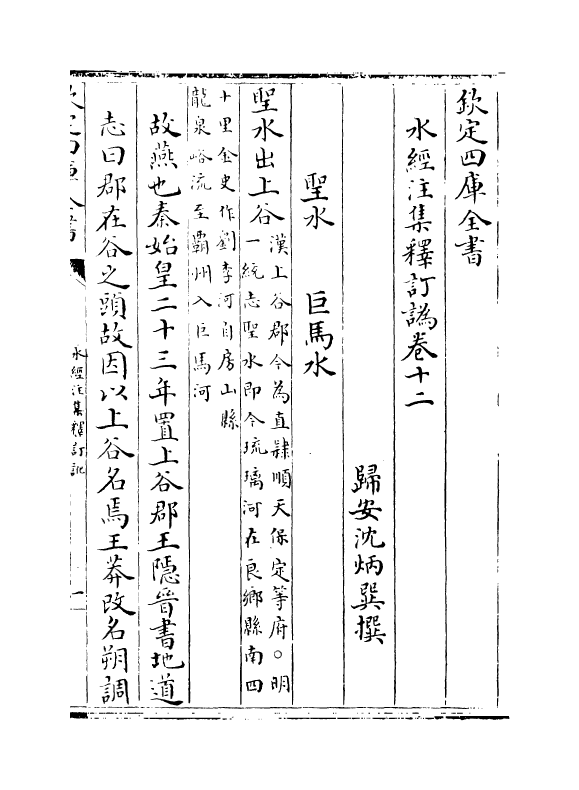 欽定四庫全書
水經注集釋訂譌卷十二
歸安沈炳巽撰
聖水　巨馬水
聖水出上谷
漢上谷郡今為直隸順天保定等府○明
一統志聖水即今琉璃河在良鄉縣南四
十里金史作劉李河自房山縣
龍泉峪流至霸州入巨馬河
故燕也秦始皇二十三年置上谷郡王隱晉書地道
志曰郡在谷之頭故因以上谷名焉王莽改名朔調
欽定四庫全書
水經注集釋訂訛
一